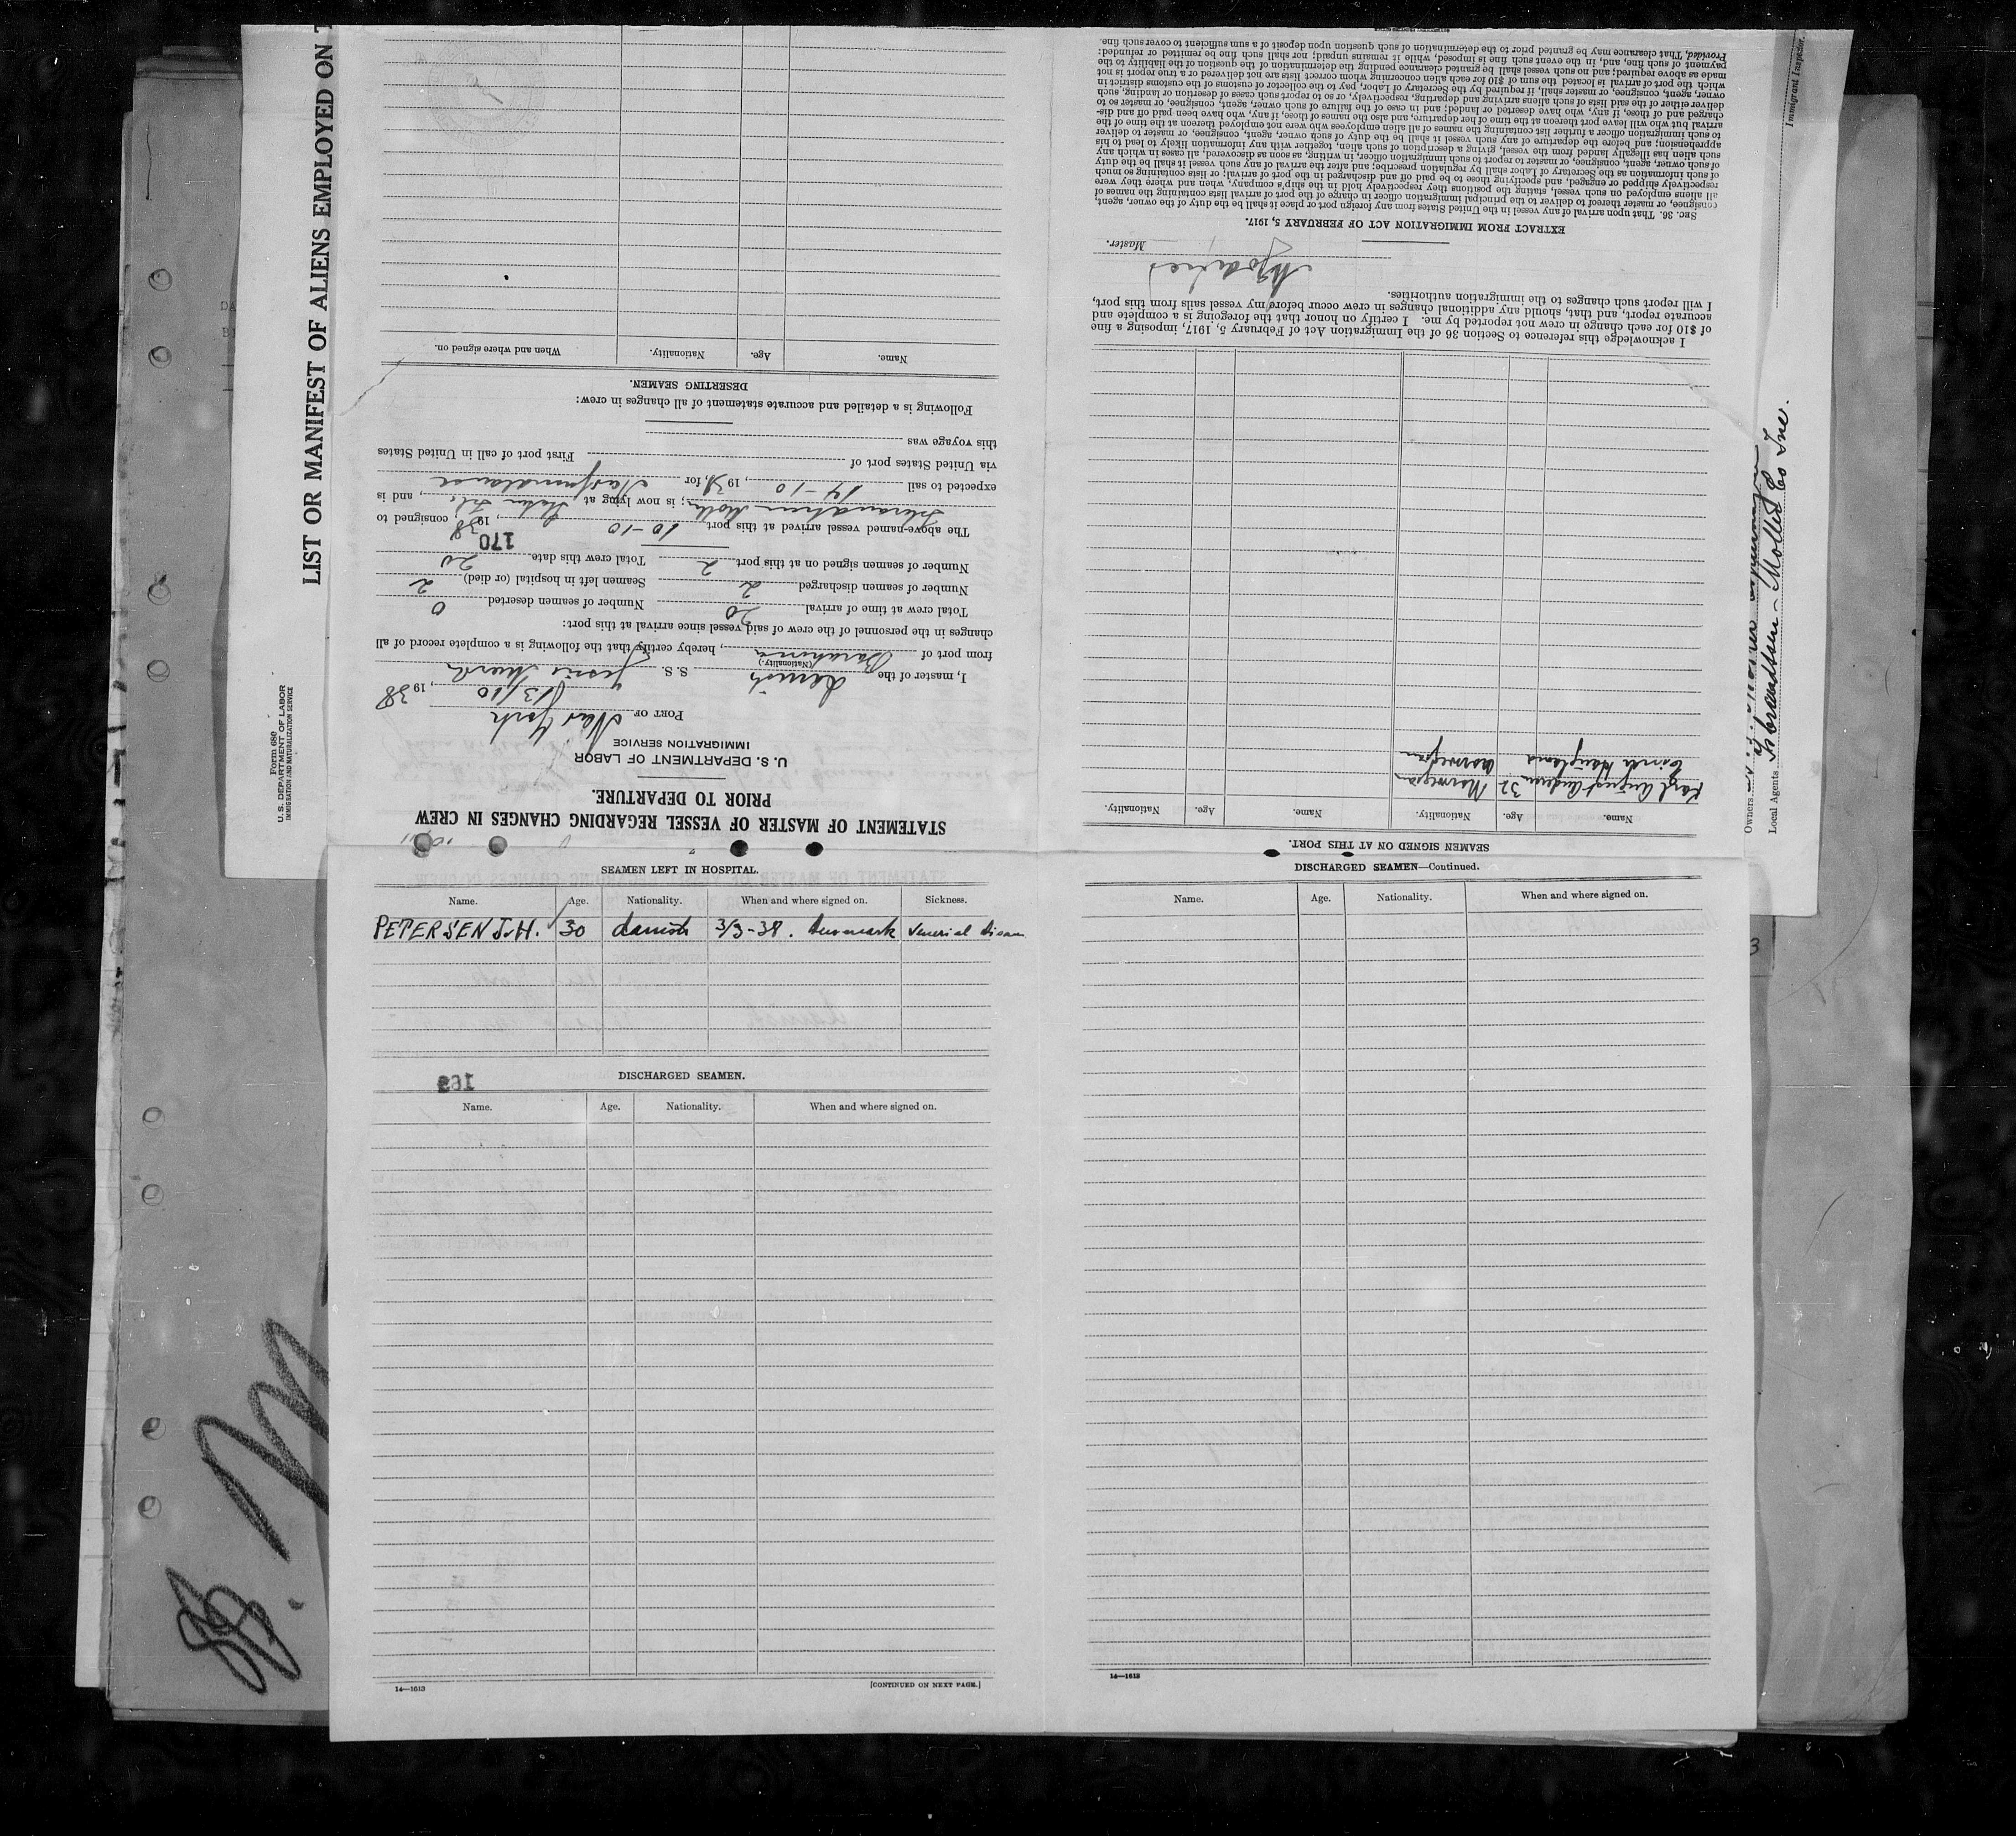 LIST OR MANIFEST OF ALIENS EMPLOYED ON
Form 680
U. S. DEPARTMENT OF LABOR
IMMIGRATION AND NATURALIZATION SERVICE
STATEMENT OF MASTER OF VESSEL REGARDING CHANGES IN CREW
PRIOR TO DEPARTURE.
U. S. DEPARTMENT OF LABOR
IMMIGRATION SERVICE
PORT OF New York
13/10, 1938
I, master of the danish S. S.
(Nationality.)
from port of Barahona, hereby certify that the following is a complete record of all
changes in the personnel of the crew of said vessel since arrival at this port:
Total crew at time of arrival 20 Number of seamen deserted 0
Number of seamen discharged 2 Seamen left in hospital (or died) 2
Number of seamen signed on at this port 2 Total crew this date 20
170
The above-named vessel arrived at this port 10-10, 1938, consigned to
; is now lying at, and is
expected to sail 14-10, 1938, for
via United States port of First port of call in United States
this voyage was
Following is a detailed and accurate statement of all changes in crew:
DESERTING SEAMEN.
Name. Age. Nationality. When and where signed on.
SEAMEN SIGNED ON AT THIS PORT.
Name. Age. Nationality. Name. Age. Nationality.
Karl August Andersen 32 Norwegian
Einar Haugland Norwegian
I acknowledge this reference to Section 36 of the Immigration Act of February 5, 1917, imposing a fine
of $10 for each change in crew not reported by me. I certify on honor that the foregoing is a complete and
accurate report, and that, should any additional changes in crew occur before my vessel sails from this port,
I will report such changes to the immigration authorities.
Master.
EXTRACT FROM IMMIGRATION ACT OF FEBRUARY 5, 1917.
SEC. 36. That upon arrival of any vessel in the United States from any foreign port or place it shall be the duty of the owner, agent,
consignee, or master thereof to deliver to the principal immigration officer in charge of the port of arrival lists containing the names of
all aliens employed on such vessel, stating the positions they respectively hold in the ship's company, when and where they were
respectively shipped or engaged, and specifying those to be paid off and discharged in the port of arrival; or lists containing so much
of such information as the Secretary of Labor shall by regulation prescribe; and after the arrival of any such vessel it shall be the duty
of such owner, agent, consignee, or master to report to such immigration officer, in writing, as soon as discovered, all cases in which any
such alien has illegally landed from the vessel, giving a description of such alien, together with any information likely to lead to his
apprehension; and before the departure of any such vessel it shall be the duty of such owner, agent, consignee, or master to deliver
to such immigration officer a further list containing the names of all alien employees who were not employed thereon at the time of the
arrival but who will leave port thereon at the time of her departure, and also the names of those, if any, who have been paid off and dis-
charged and of those, if any, who have deserted or landed; and in case of the failure of such owner, agent, consignee, or master so to
deliver either of the said lists of such aliens arriving and departing, respectively, or so to report such cases of desertion or landing, such
owner, agent, consignee, or master shall, if required by the Secretary of Labor, pay to the collector of customs of the customs district in
which the port of arrival is located the sum of $10 for each alien concerning whom correct lists are not delivered or a true report is not
made as above required; and no such vessel shall be granted clearance pending the determination of the question of the liability to the
payment of such fine, and, in the event such fine is imposed, while it remains unpaid; nor shall such fine be remitted or refunded:
Provided, That clearance may be granted prior to the determination of such question upon deposit of a sum sufficient to cover such fine.
Immigrant Inspector.
Owners
Local Agents Isbrandtsen-Moller Co Inc.
SEAMEN LEFT IN HOSPITAL.
Name. Age. Nationality. When and where signed on. Sickness.
PETERSEN J.H. 30 danish 3/3-38. Denmark Venerial disease
DISCHARGED SEAMEN.
Name. Age. Nationality. When and where signed on.
14—1613 [CONTINUED ON NEXT PAGE.]
DISCHARGED SEAMEN—Continued.
Name. Age. Nationality. When and where signed on.
14—1613
3